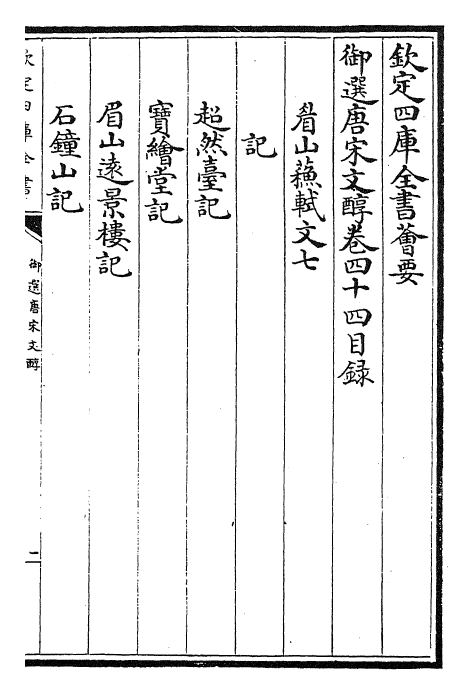 欽定四庫全書薈要
御選唐宋文醇卷四十四目録
眉山蘓軾文七
記
超然臺記
寶繪堂記
眉山逺景樓記
石鐘山記
欽定四庫全書
御選唐宋文醇
二